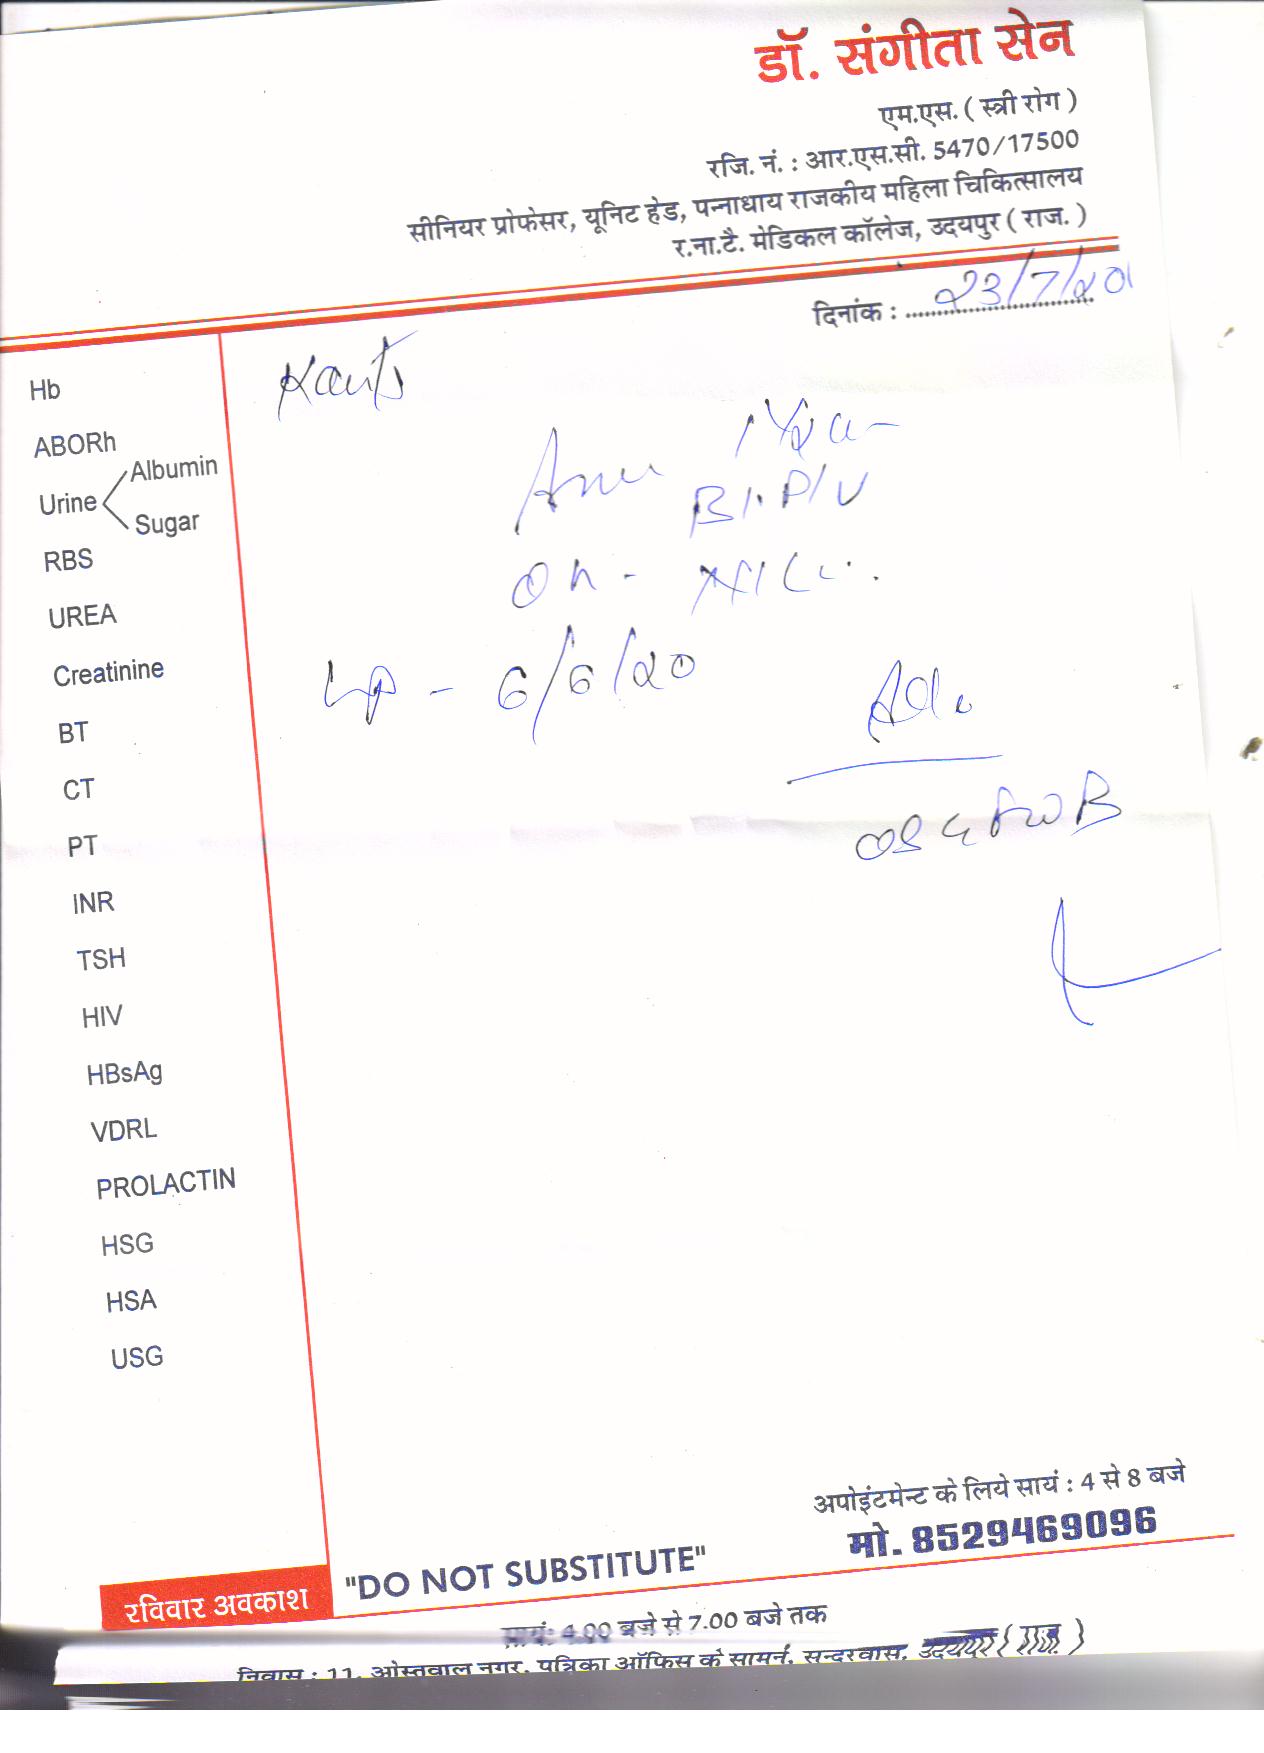 डॉ. संगीता सेन
एम.एस. ( स्त्री रोग )
रजि. नं. : आर.एस.सी. 5470/17500
सीनियर प्रोफेसर, यूनिट हेड, पन्नाधाय राजकीय महिला चिकित्सालय
र.ना.टै. मेडिकल कॉलेज, उदयपुर ( राज. )
दिनांक : 23/7/20
Hb
ABORh
Urine Albumin
Sugar
RBS
UREA
Creatinine
BT
CT
PT
INR
TSH
HIV
HBsAg
VDRL
PROLACTIN
HSG
HSA
USG
P/V
6/6/20
Adv
अपोइंटमेन्ट के लिये सायं : 4 से 8 बजे
मो. 8529469096
रविवार अवकाश "DO NOT SUBSTITUTE"
सायं: 4.00 बजे से 7.00 बजे तक
निवास : 11, ओस्तवाल नगर, पत्रिका ऑफिस के सामने, सुन्दरवास, उदयपुर ( राज. )